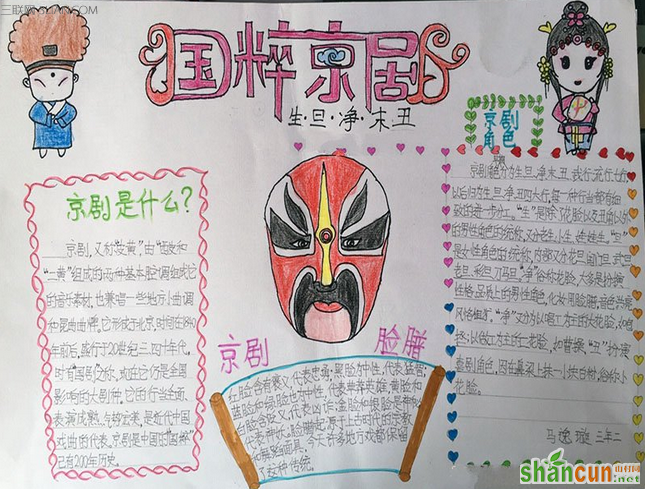 国粹京剧
生·旦·净·末·丑
京剧是什么?
京剧,又称"皮黄",由"西皮和
二黄"组成的两种基本腔调组成它
的音乐素材,也兼唱一些地方小曲调
和昆曲曲牌。它形成于北京,时间在1840
年前后,盛行于20世纪三、四十年代,
时有"国剧"之称,现在它仍是全国
影响的大剧种。它的行当全面、
表演成熟、气势宏美,是近代中国
戏曲的代表。京剧是中国的"国粹"
已有200年历史
京剧
脸谱
红脸含有褒义,代表忠勇;黑脸为中性,代表猛智;
蓝脸和绿脸也为中性,代表草莽英雄;黄脸和
白脸含贬义,代表凶诈;金脸和银脸是神秘,
代表神妖。脸谱起源于上古时代的宗教
和舞蹈面具,今天许多地方戏都保留
了这种传统。
京剧
角色
京剧
以后归为生、旦、净、丑四大行,每一种行当都有细
致的进一步分工。"生"是除了花脸以及丑角以外
的男性角色的统称,又分老生、小生、武生、娃娃生。"旦"
是女性角色的统称,
"净"俗称花脸,大多是扮演
性格、品貌上的男性角色,化妆用脸谱,音色洪亮,
风格粗犷。"净"又分为以唱工为主的大花脸,
以做工为主的二花脸,如曹操。"丑"扮演
喜剧角色,因在鼻梁上抹一小块白粉,俗称小
花脸。
马逸璇 三年二
三联网 3LIAN.COM
shancun
山村网
.net